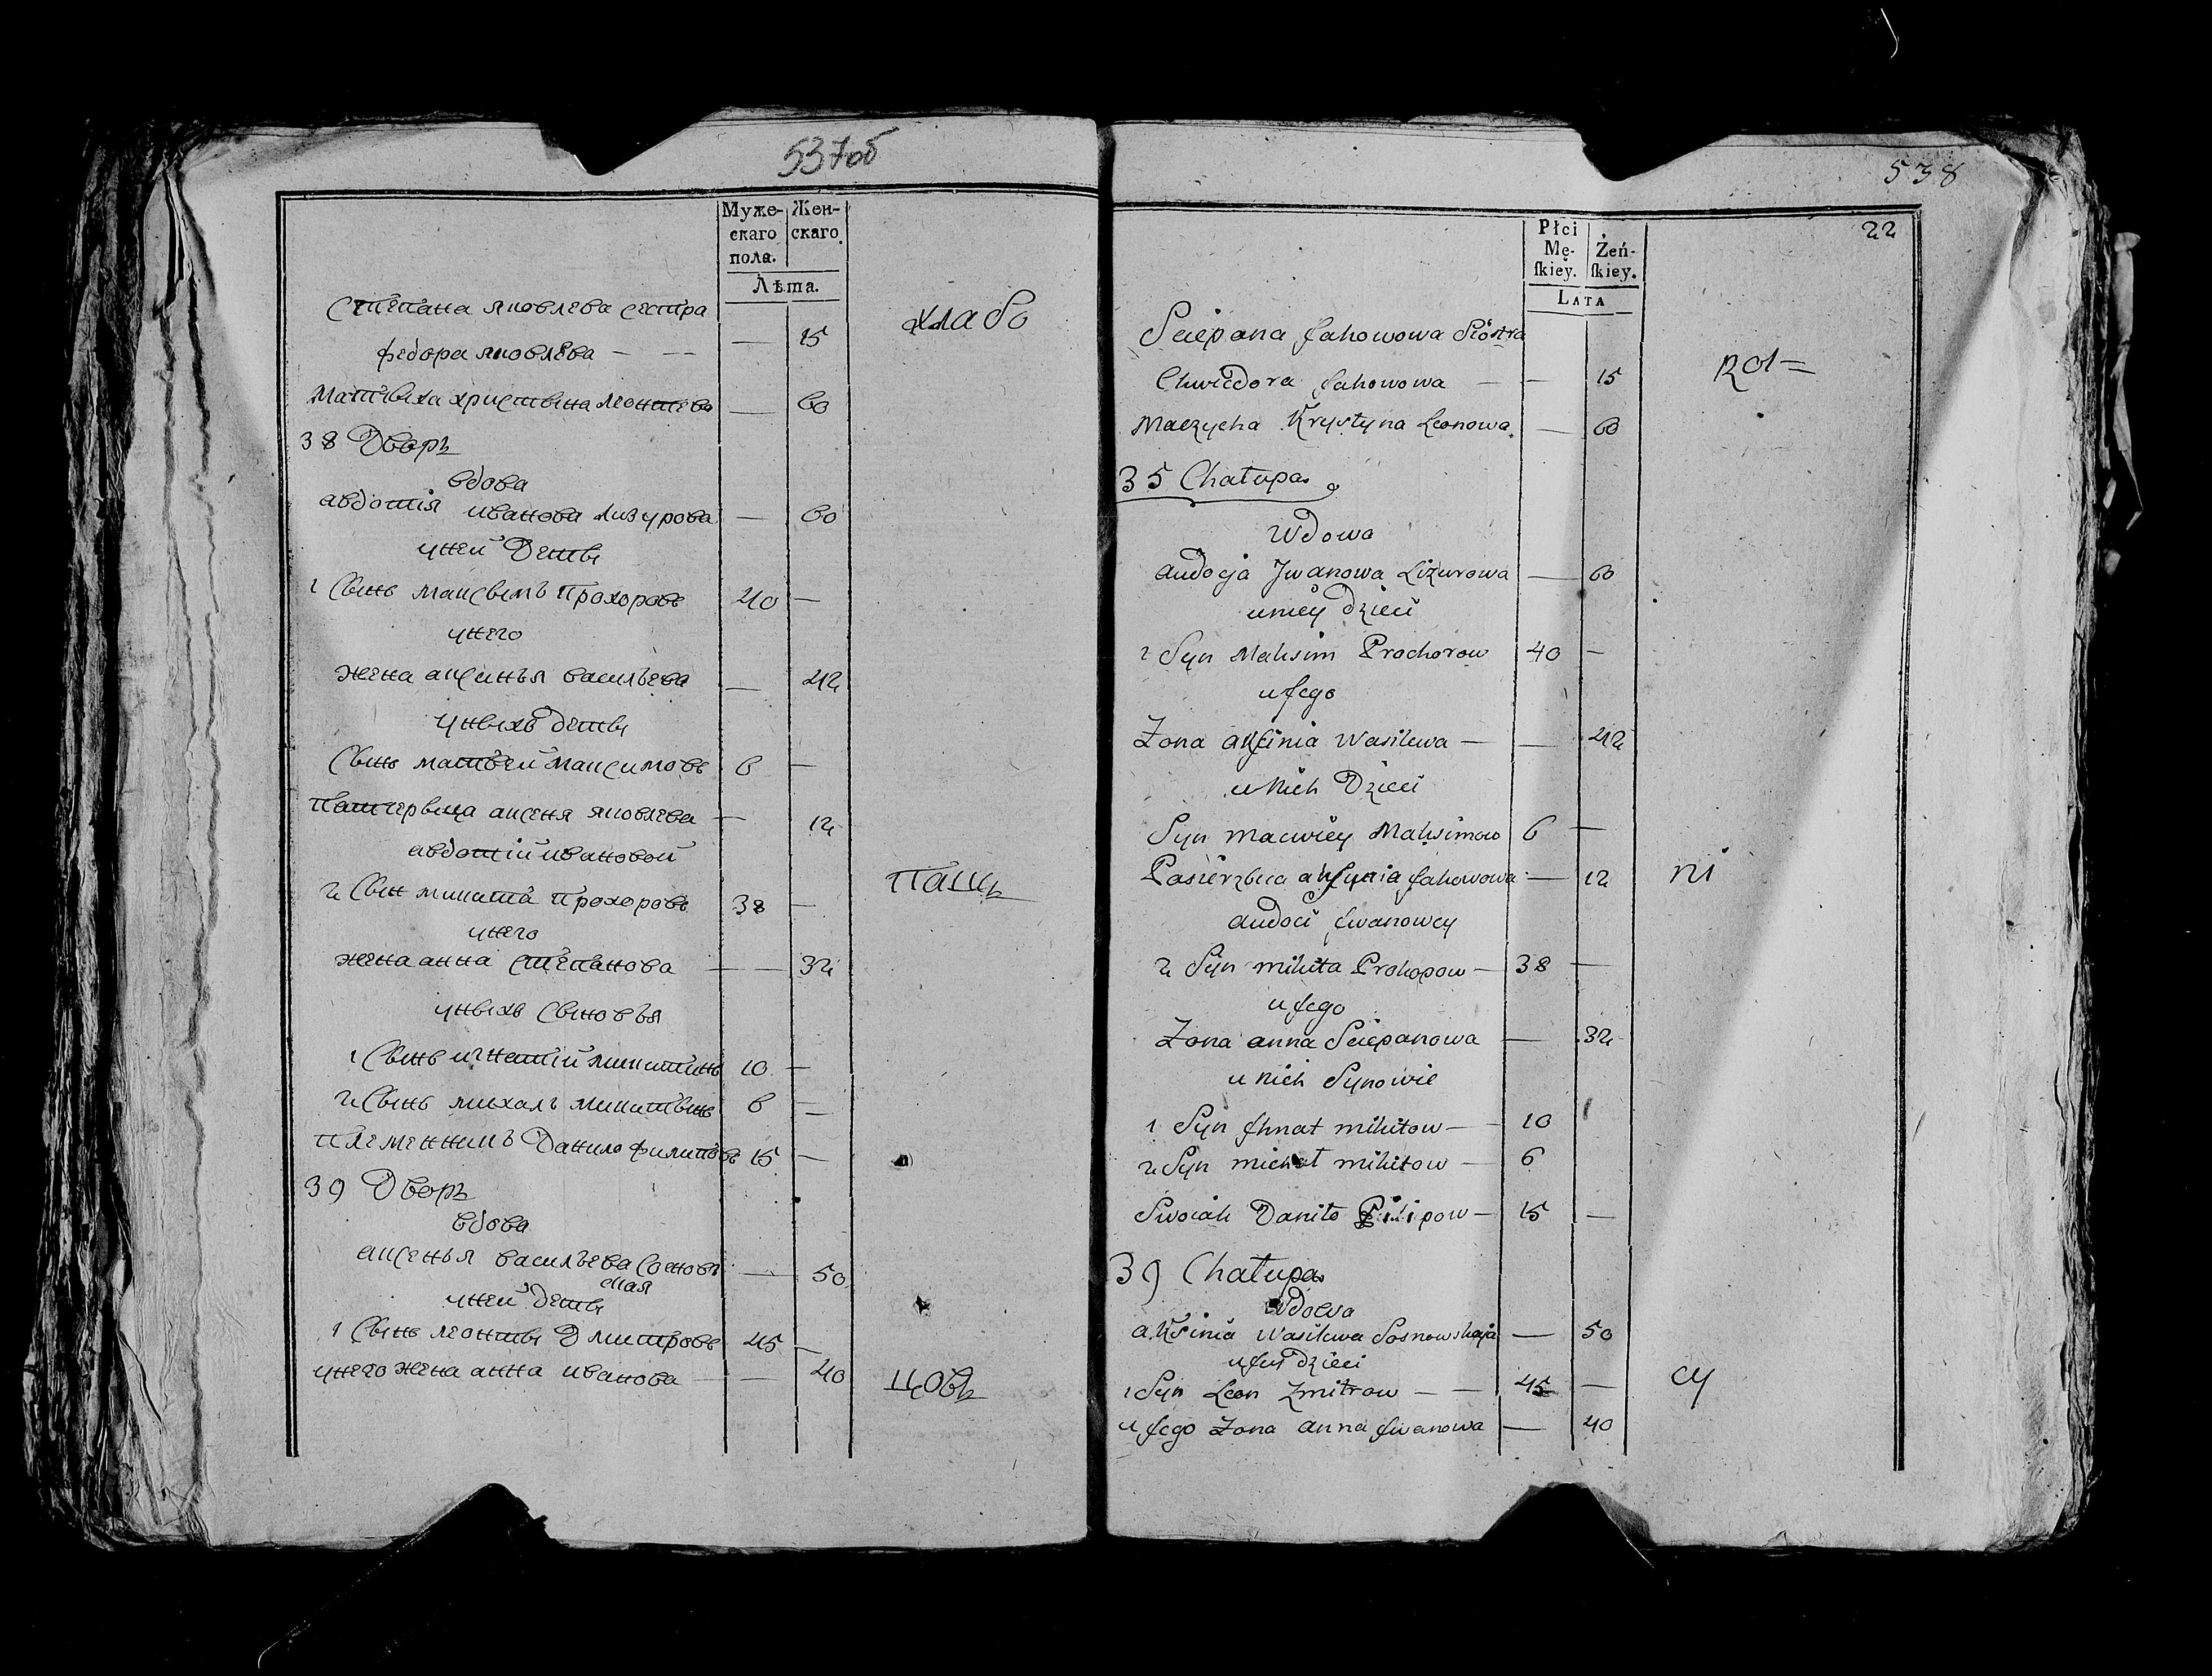 537об
Муже-
скаго
пола.
Жен-
скаго.
Лѣта.
Степана яковлева сестра
федора яковлева — — — 15
хлабо
Матчыха христына леонтева — 60
38 Дворъ
вдова
авдотія иванова лизурова — 60
унеи Деты
1 Сынъ максымъ прохоровъ 40 —
унего
жена аксинья васильева — 42
уныхъ деты
Сынъ матвеи максимовъ 6 —
патчерыца аксеня яковлева — 12
авдотіи ивановои
2 Сын микита прохоровъ 38 —
пащъ
унего
жена анна степанова — — 32
уныхъ сыновья
1 Сынъ игнатіи микитинъ 10 —
2 Сынъ михалъ микитынъ 6 —
племенникъ Данило филиповъ 15 —
39 Дворъ
вдова
аксенья васильева сосновъ
ская — 50
унеи деты
1 Сынъ леонты Дмитровъ 45 —
унего жена анна иванова — — 40
цовъ
538
22
Płci
Mę-
ſkiey.
Żeń-
ſkiey.
Lata
Sciepana Jakowowa Siostra
Chwiedora Jakowowa — — 15
Rol=
Maczycha Krystyna Leonowa — 60
35 Chałupa
Wdowa
Audocja Jwanowa Lizurowa — 60
uniey Dzieci
1 Syn Maksim Prochorow 40 —
u Jego
Zona akſinia Wasilewa — — 42
u Nich Dzieci
Syn Maciwiey Maksimow 6 —
Pasierzbica akſynia Jakowowa — 12
ni
Audoci Jwanowey
2 Syn mikita Prokopow — 38 —
u Jego
Zona anna Sciepanowa — 32
u nich Synowie
1 Syn Jhnat mikitow — 10
2 Syn michał mikitow — 6
Swoiak Daniło Pilipow — 15 —
39 Chałupa
Wdowa
akſinia Wasilewa Sosnowskaja — 50
u Jey dzieci
1 Syn Leon Zmitrow — — 45 —
cy
u Jego Zona anna Jwanowa — 40